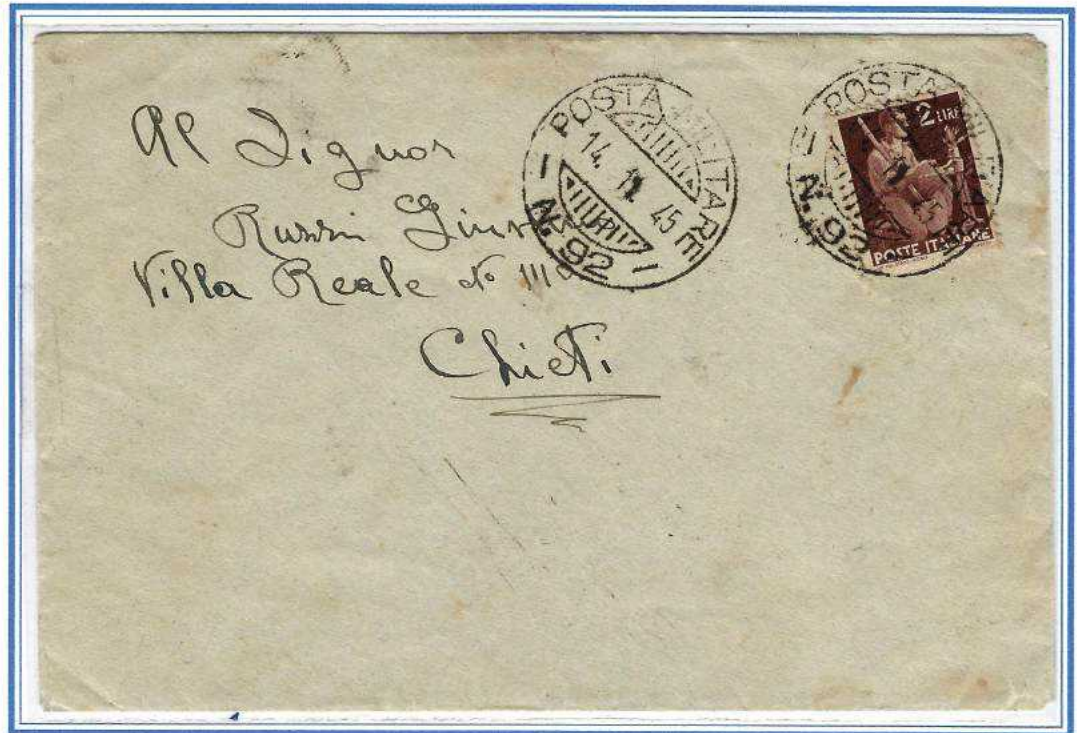 Al Signor
Russi
Villa Reale
Chieti
POSTA MILITARE
14. 11. 45
N. 92
POSTA
N. 92
2 LIRE
POSTE ITALIANE